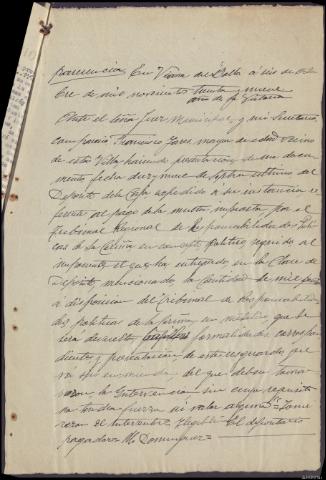 parecencia En Viana del Bollo a seis de octu
bre de mil novecientos treinta y nueve
año de la Victoria
Ante el señor Juez Municipal y mi Secretario
compareció Francisco mayor de edad vecino
de esta Villa haciendo presentación de un docu
mento fecha diez y nueve de septiembre último del
Depósito de la Caja expedido a su instancia re
ferente al pago de la multa impuesta por el
Tribunal Regional de Responsabilidades Políti
cas de La Coruña en concepto político seguido al
mismo el que ha entregado en la Clase de
Depósito mencionado la Cantidad de mil
a disposición del Tribunal de Responsabilida
des políticas de La Coruña en metálico que de
berá devolver formalidades correspon
dientes y presentación de este resguardo
del que deberá tomar
razón la Intervención sin cuyo requisito
no tendrá fuerza ni valor alguno = Toma
razón el Interventor Ilegible El depositario
pagador M. Dominguez =